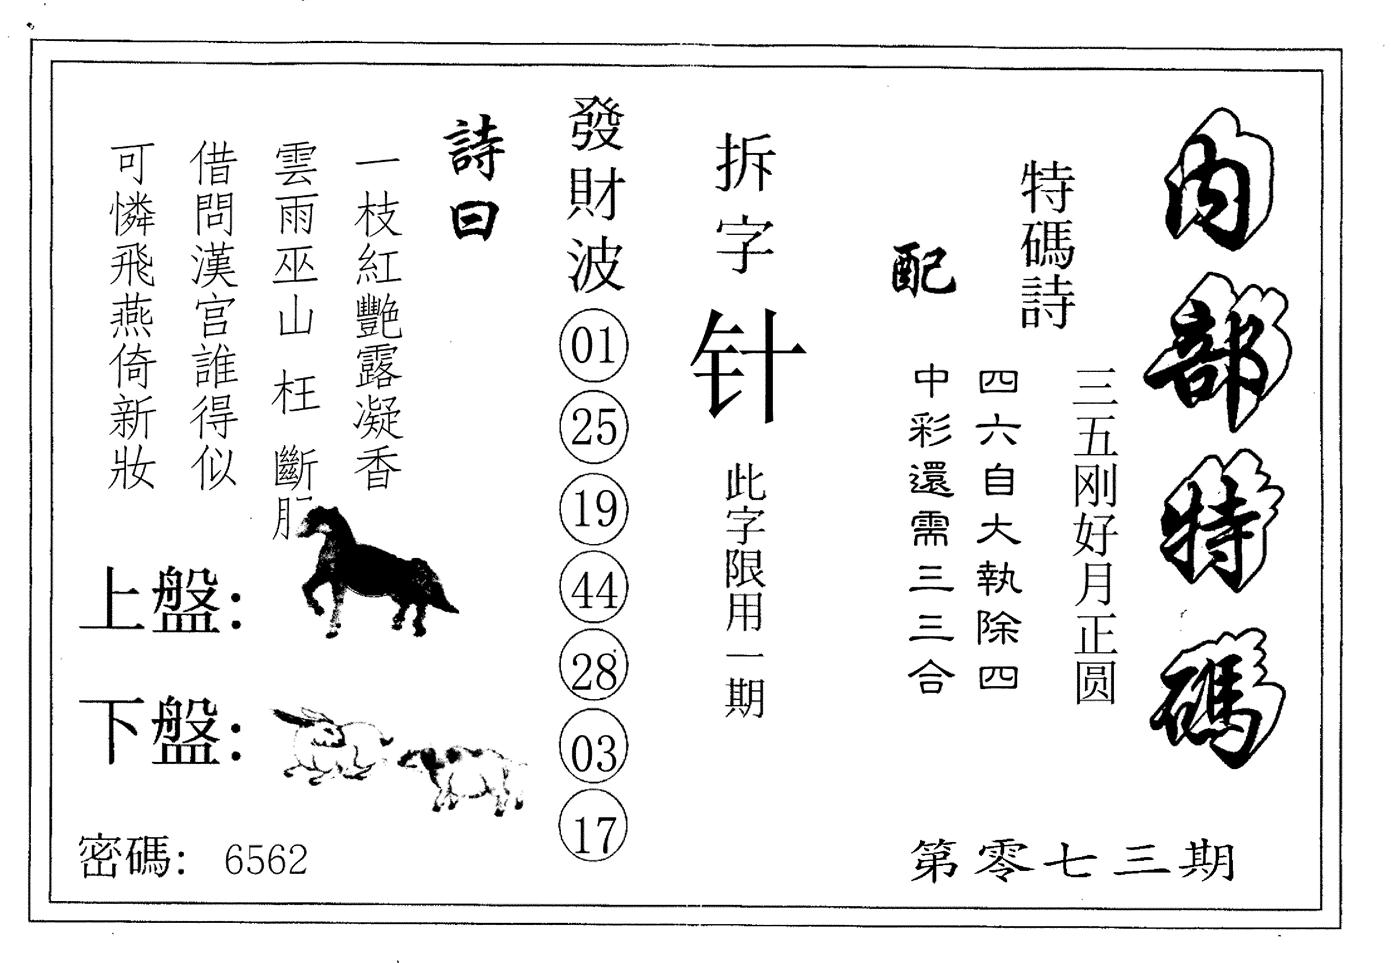 內部特碼
特碼詩
三五刚好月正圆
四六自大執除四
中彩還需三三合
配
第零七三期
拆字
针
此字限用一期
發財波
01
25
19
44
28
03
17
詩曰
一枝紅艷露凝香
雲雨巫山枉斷
借問漢宮誰得似
可憐飛燕倚新妝
上盤:
下盤:
密碼: 6562